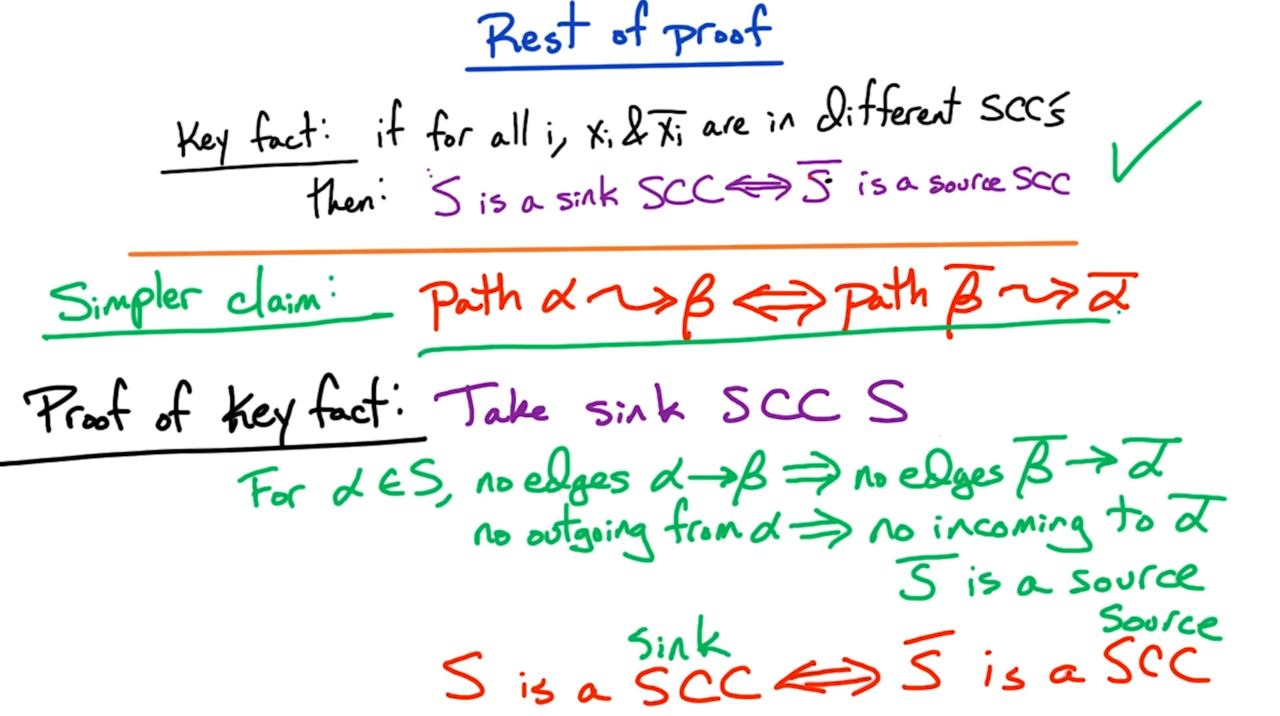 Rest of proof
Key fact: if for all i, xᵢ & x̅ᵢ are in different SCC's
then: S is a sink SCC ⟺ S̅ is a source SCC ✓
Simpler claim: Path α ⇝ β ⟺ path β̅ ⇝ α̅
Proof of key fact: Take sink SCC S
For α ∈ S, no edges α → β ⟹ no edges β̅ → α̅
no outgoing from α ⟹ no incoming to α̅
S̅ is a source
sink source
S is a SCC ⟺ S̅ is a SCC